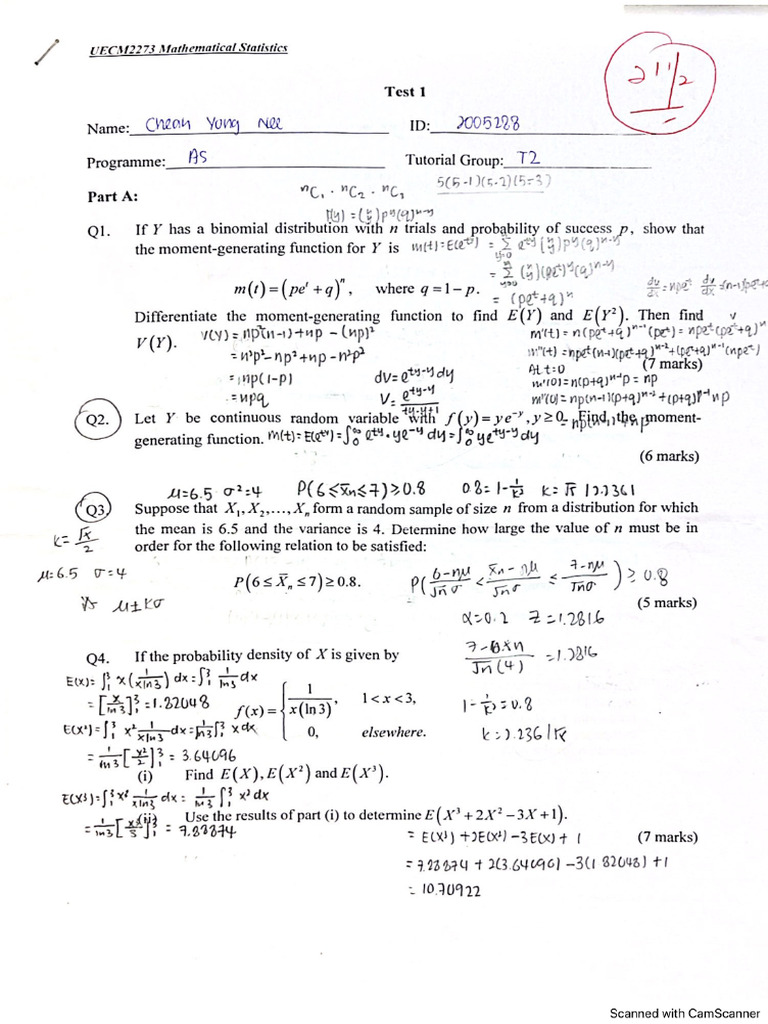 UECM2273 Mathematical Statistics
21 1/2
Test 1
Name: Chean Yung Nee ID: 2005288
Programme: AS Tutorial Group: T2
5(5-1)(5-2)(5-3)
Part A: ⁿC₁ · ⁿC₂ · ⁿC₃
P(y) = (n y) p^y (q)^n-y
Q1. If Y has a binomial distribution with n trials and probability of success p, show that
the moment-generating function for Y is m(t) = E(e^ty) = Σ e^ty (n y) p^y (q)^n-y
= Σ (n y)(pe^t)^y (q)^n-y
m(t) = (pe^t + q)^n, where q = 1 − p. = (pe^t + q)^n
Differentiate the moment-generating function to find E(Y) and E(Y²). Then find
V(Y). V(Y) = np²(n-1) + np - (np)² m'(t) = n(pe^t + q)^n-1 (pe^t) = npe^t (pe^t + q)^n-1
= n²p² - np² + np - n²p² m''(t) = npe^t (n-1)(pe^t + q)^n-2 + (pe^t + q)^n-1 (npe^t)
(7 marks)
= np(1-p) dv = e^ty-y dy At t=0
m'(0) = n(p+q)^n-1 p = np
= npq v = e^ty-y
Q2. Let Y be continuous random variable with f(y) = ye^−y, y ≥ 0. Find the moment-
generating function. m(t) = E(e^ty) = ∫₀^∞ e^ty · ye^-y dy = ∫₀^∞ ye^ty-y dy
(6 marks)
μ = 6.5 σ² = 4 P(6 ≤ x̄n ≤ 7) ≥ 0.8 0.8 = 1 - 1/k² k = √5
Q3. Suppose that X₁, X₂, ..., Xₙ form a random sample of size n from a distribution for which
the mean is 6.5 and the variance is 4. Determine how large the value of n must be in
order for the following relation to be satisfied:
μ = 6.5 σ = 4
P(6 ≤ X̄ₙ ≤ 7) ≥ 0.8. P( 6-nμ/√n σ < x̄n - nμ/√n σ ≤ 7-nμ/√n σ ) ≥ 0.8
μ ± kσ
(5 marks)
α = 0.2 z = 1.2816
Q4. If the probability density of X is given by
E(X) = ∫₁³ x (1/x ln 3) dx = ∫₁³ 1/ln 3 dx
= [x/ln 3]₁³ = 1.82048
f(x) = { 1/x(ln 3), 1 < x < 3,
0, elsewhere.
1 - 1/k² = 0.8
E(X²) = ∫₁³ x² 1/x ln 3 dx = 1/ln 3 ∫₁³ x dx
= 1/ln 3 [x²/2]₁³ = 3.64096
(i) Find E(X), E(X²) and E(X³).
E(X³) = ∫₁³ x³ 1/x ln 3 dx = 1/ln 3 ∫₁³ x² dx
(ii) Use the results of part (i) to determine E(X³ + 2X² − 3X + 1).
= 1/ln 3 [x³/3]₁³ = 7.88874
= E(X³) + 2E(X²) - 3E(X) + 1 (7 marks)
= 7.88874 + 2(3.64096) - 3(1.82048) + 1
= 10.70922
Scanned with CamScanner